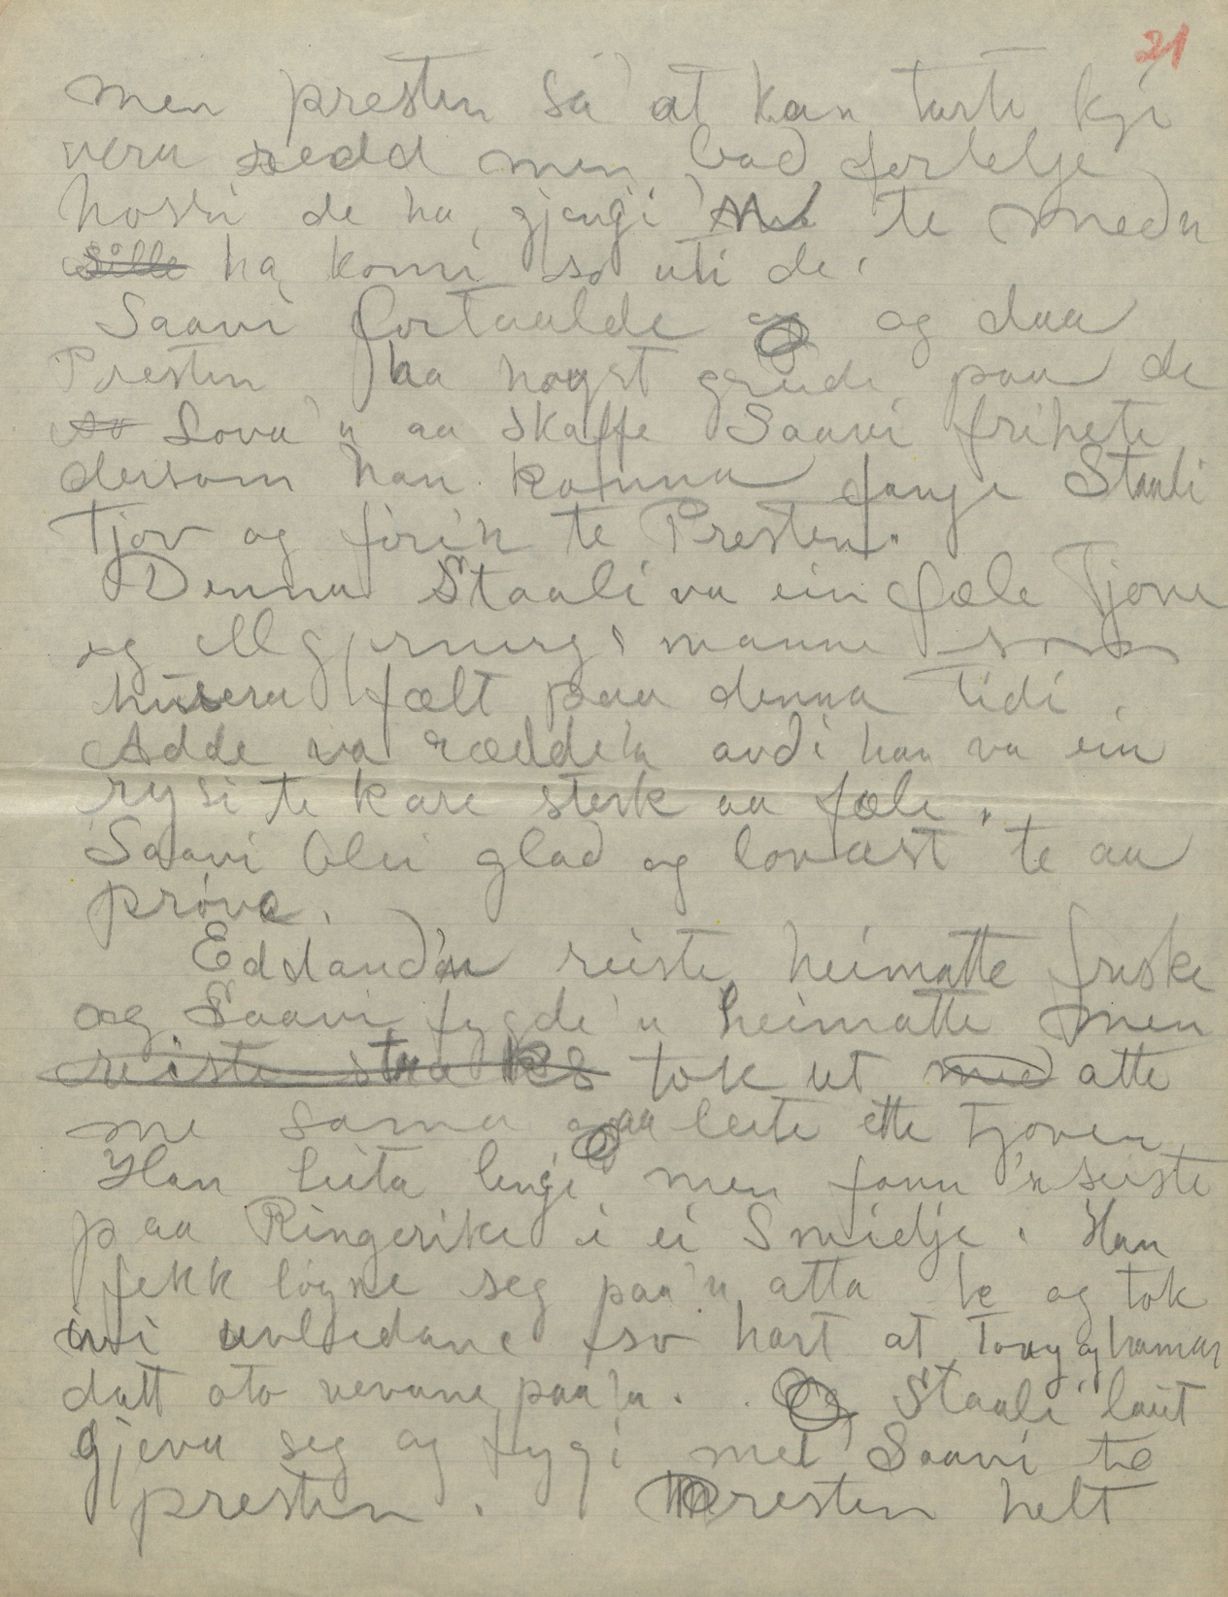 21
men presten sa at han turte kji
vera redd men bad fortelje
hossi de ha gjengi te meda
sille ha komi so uti de.
Saavi fortaalde og daa
Presten ha høgst greide paa de
so Lova'n aa skaffe Saavi frihete
dersom han kanna fange Staali
Tjov og föri'n te Presten.
Denna Staali va ein fæle Tjove
og Illgjernings manne som
husera fælt paa denna tidi.
Adde va rædde'n avdi han va ein
rysi te kare sterk aa fæle.
Saavi blei glad og lovast te aa
prøva.
Eddandø'n reiste heimatte friske
og Saavi fygde'n heimatte men
reiste straks tok ut med atte
me sama aa leite ette Tjoven
Han leita lengi men fann'n seiste
paa Ringerike i ei Smidje. Han
fekk løgne seg paa'n atta te og tok
ivi uvleidane so hart at Tong og hamar
datt oto nevane paa'n. Staali laut
gjeva seg og fygi med Saavi te
presten. Presten helt